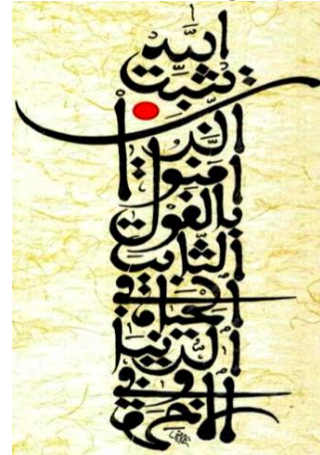 يُثَبِّتُ اللَّهُ
الَّذِينَ
آمَنُوا
بِالْقَوْلِ
الثَّابِتِ
فِي الْحَيَاةِ
الدُّنْيَا
وَفِي
الْآخِرَةِ